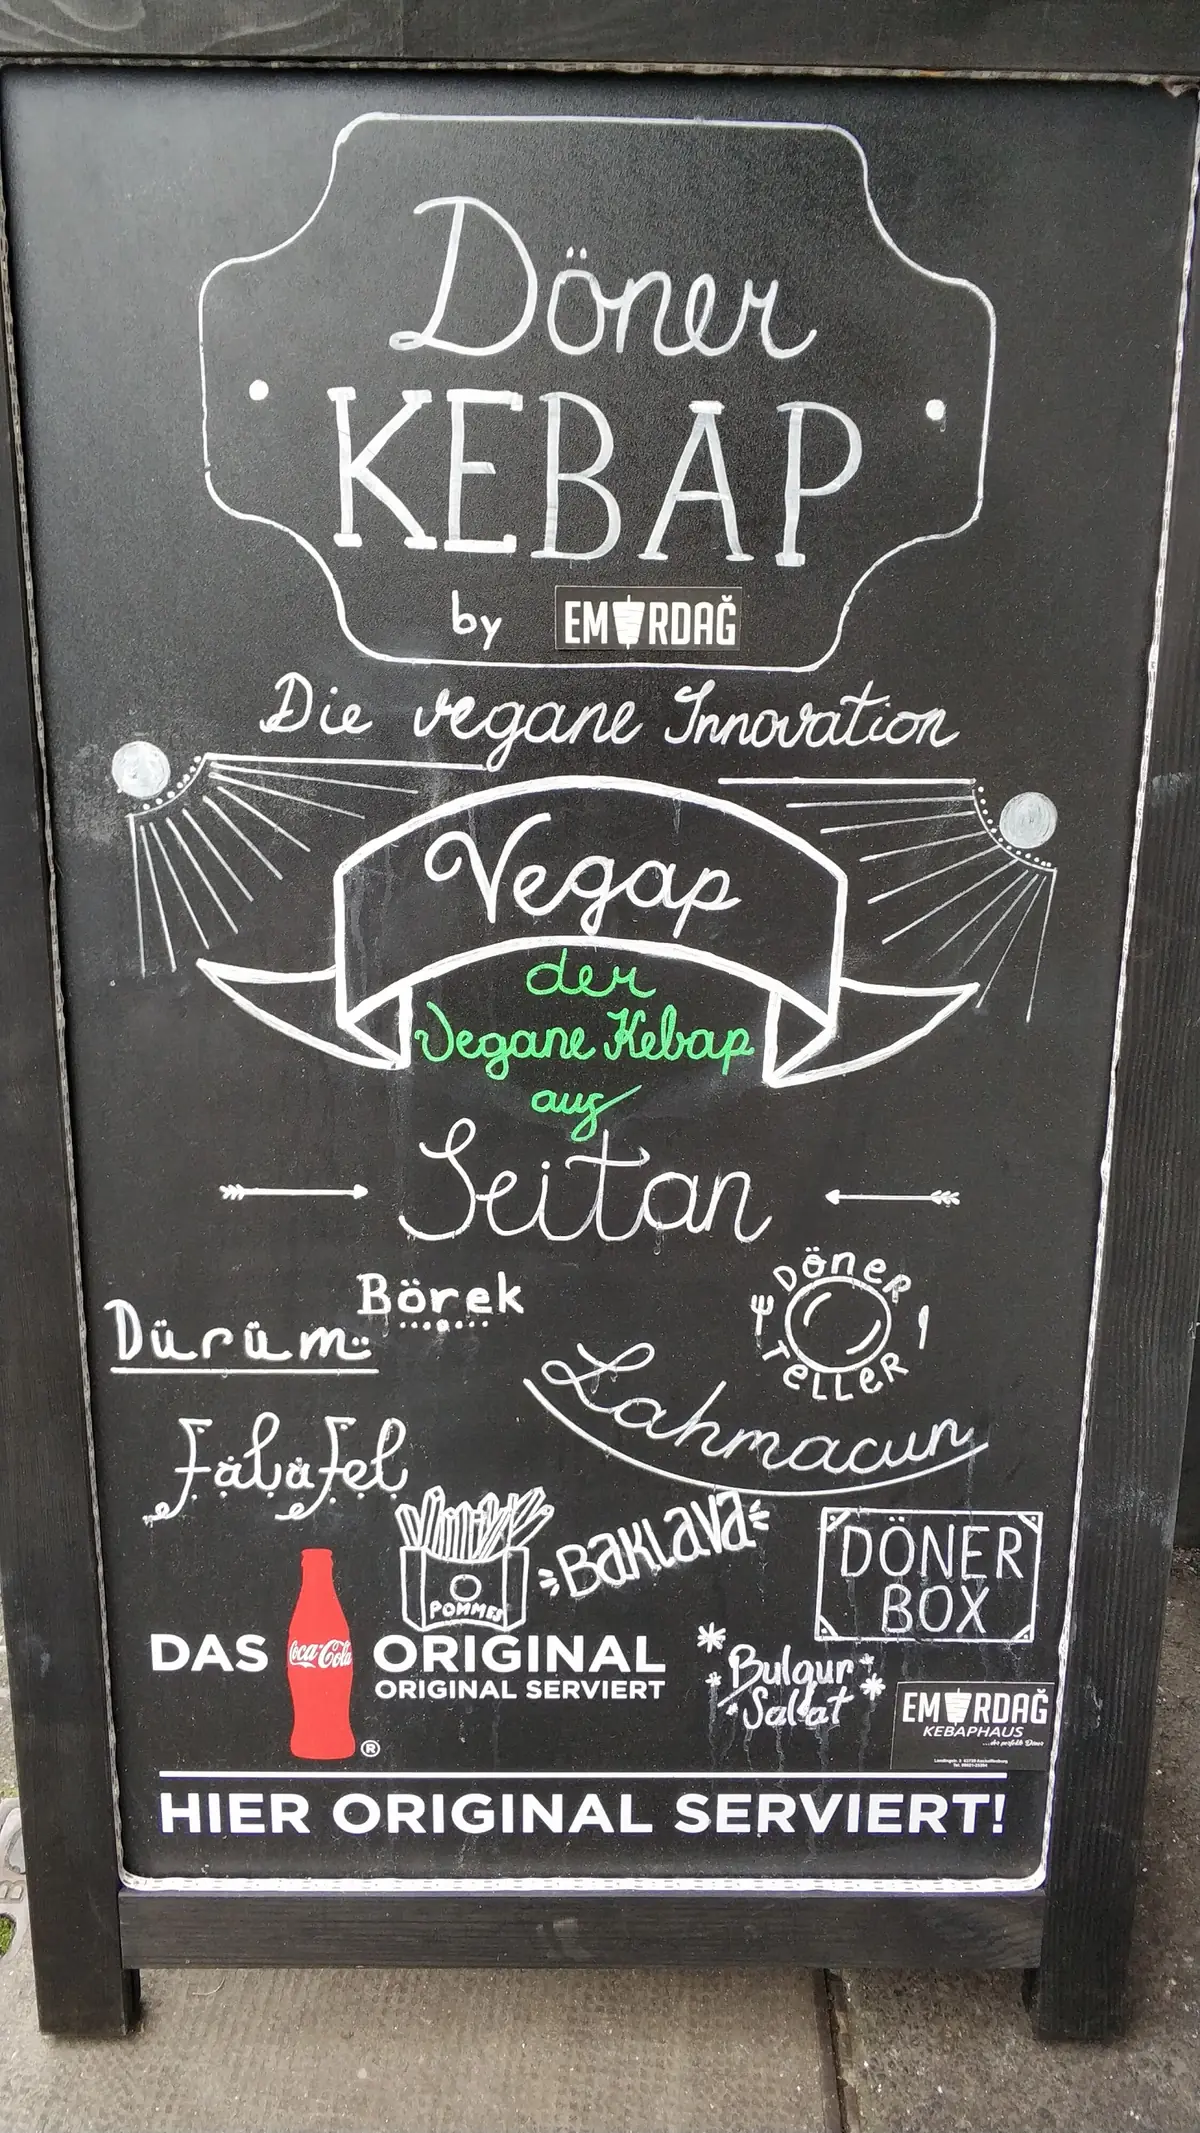 Döner
KEBAP
by EMIRDAĞ
Die vegane Innovation
Vegap
der
Vegane Kebap
aus
Seitan
Börek
Döner
Teller
Dürüm
Lahmacun
Falafel
POMMES
Baklava
DÖNER
BOX
DAS Coca-Cola ORIGINAL
ORIGINAL SERVIERT
®
Bulgur
Salat
EMIRDAĞ
KEBAPHAUS
...der perfekte Döner
HIER ORIGINAL SERVIERT!